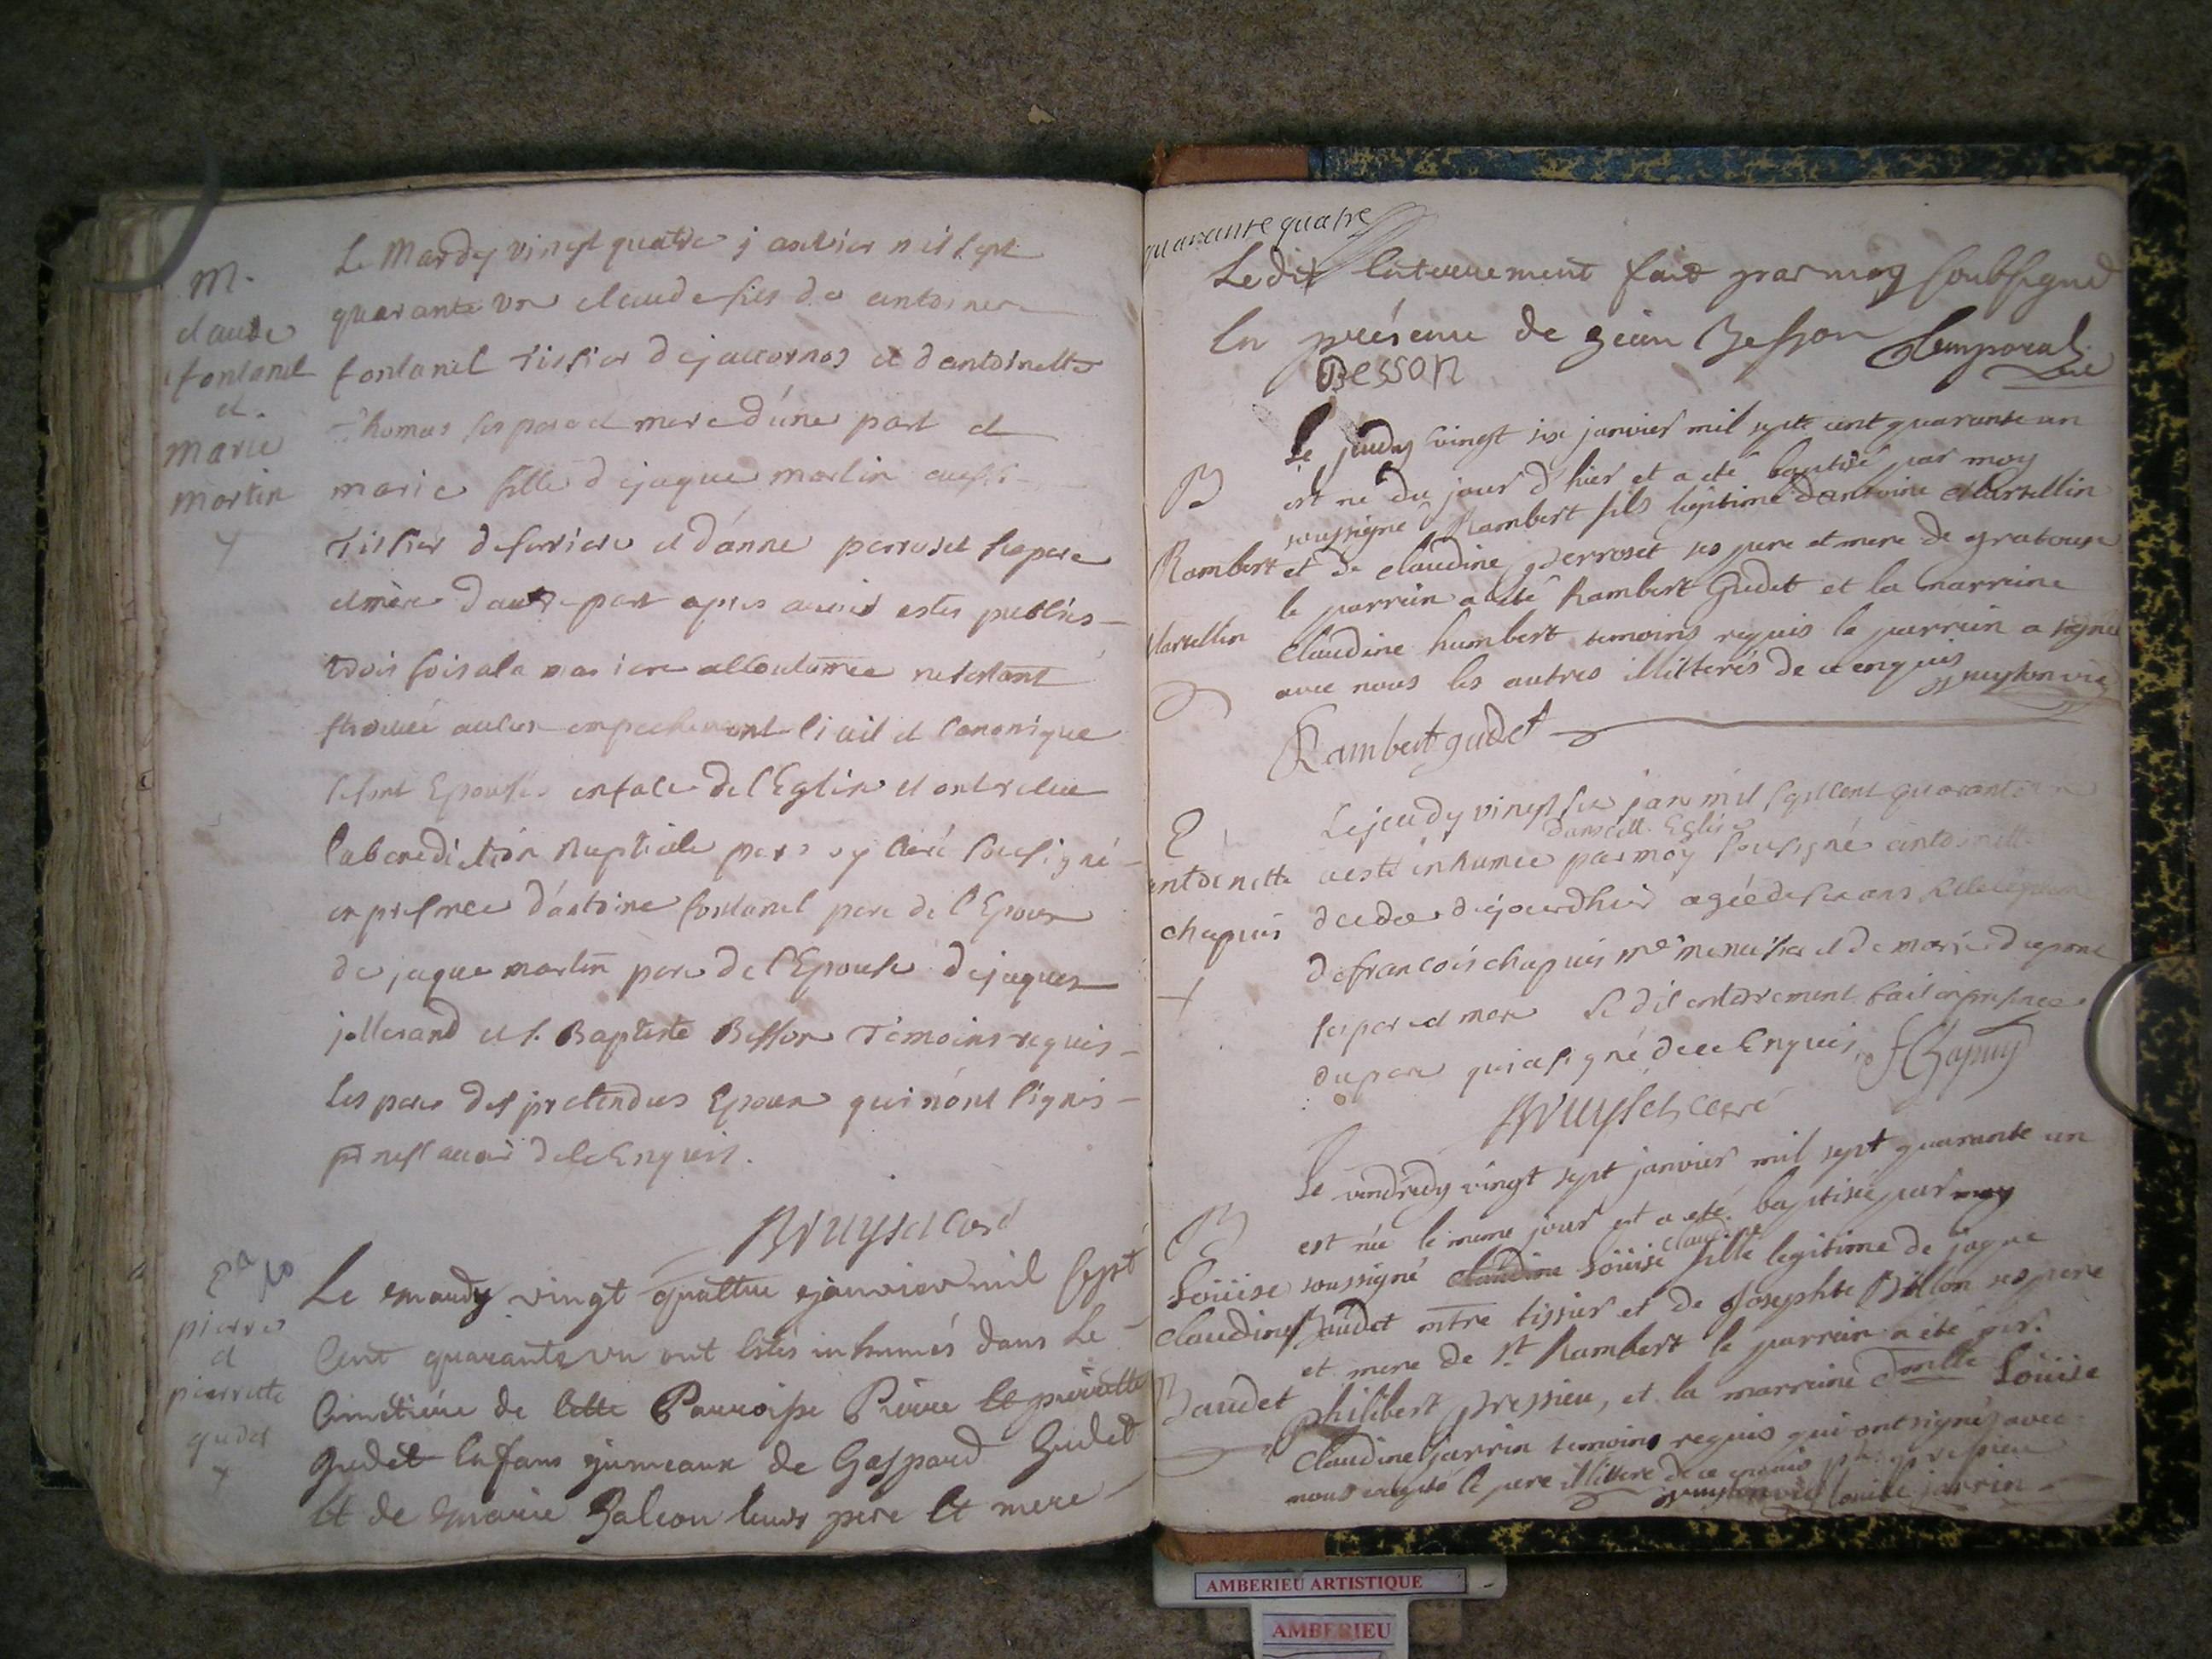 M.
claude
fontanel
et.
Marie
Martin
Le Mardy vingt quatre janvier mil sept
quarante un claude fils de antoine
fontanel tissier de jacornas et d'antoinette
Thomas ses pere et mere d'une part et
marie fille de jaque martin aussi
tissier de serriere et d'anne perroset ses pere
et mère d'autre part apres avoir estés publiés
trois fois a la maniere accoutumée ne s'estant
trouvé aucun empechement civil et canonique
se sont Epousés en face de l'Eglise et ont receu
la benediction Nuptiale par moy curé sousigné
en presence d'antoine fontanel pere de l'Epoux
de jaque martin pere de l'Epouse de jaques
jollerand et J. Baptiste Besson Témoins requis
les peres des pretendus Epoux qui n'ont signés
pr ne sçavoir de ce Enquis.
Bruyset curé
E
pierre
et
pierrette
gudet
Le mardy vingt quattre janvier mil sept
Cent quarante un ont Estés inhumés dans Le
Cimetiere de Cette Parroisse Pierre Et pierrette
Gudet Enfans jumeaux de Gaspard Gudet
Et de Marie Galeon leurs pere Et mere
quarante quatre
Le dit Enterrement fait par moy soubsigné
En présence de jean Besson Temporal
Besson vic
B
Rambert
Marcellin
Le jeudy vingt six janvier mil sept cent quarante un
est né du jour d'hier et a eté baptisé par moy
soussigné Rambert fils legitime d'antoine Marcellin
et de Claudine perroset ses pere et mere de gratoux
le parrein a eté Rambert Gudet et la marreine
Claudine humbert temoins requis le parrein a signé
avec nous les autres illitterés de ce enquis
Rambert gudet
E
antoinette
chapuis
Le jeudy vingt six janv mil sept cent quarante un
dans cette Eglise
a esté inhumée par moy sousigné antoinette
decedee d'ajourdhuid agée de six ans
de francois chapuis me menuisier et de marie dupont
ses pere et mere Le dit enterrement fait en presence
du pere qui a signé de ce Enquis. f Chapuy
Bruyset curé
B
Loüise
Claudine
Baudet
Le vendredy vingt sept janvier mil sept quarante un
est née le meme jour et a eté baptisée par moy
claudine
soussigné claudine Loüise fille legitime de jaque
Baudet mtre tissier et de Josephte Billon ses pere
et mere de St. Rambert le parrein a eté sr.
Philibert pressieu, et la marreine dmlle Loüise
Claudine jarrin temoins requis qui ont signés avec
nous excepté le pere illitteré de ce enquis ph. pressieu
louise jarrin
AMBERIEU ARTISTIQUE
AMBERIEU